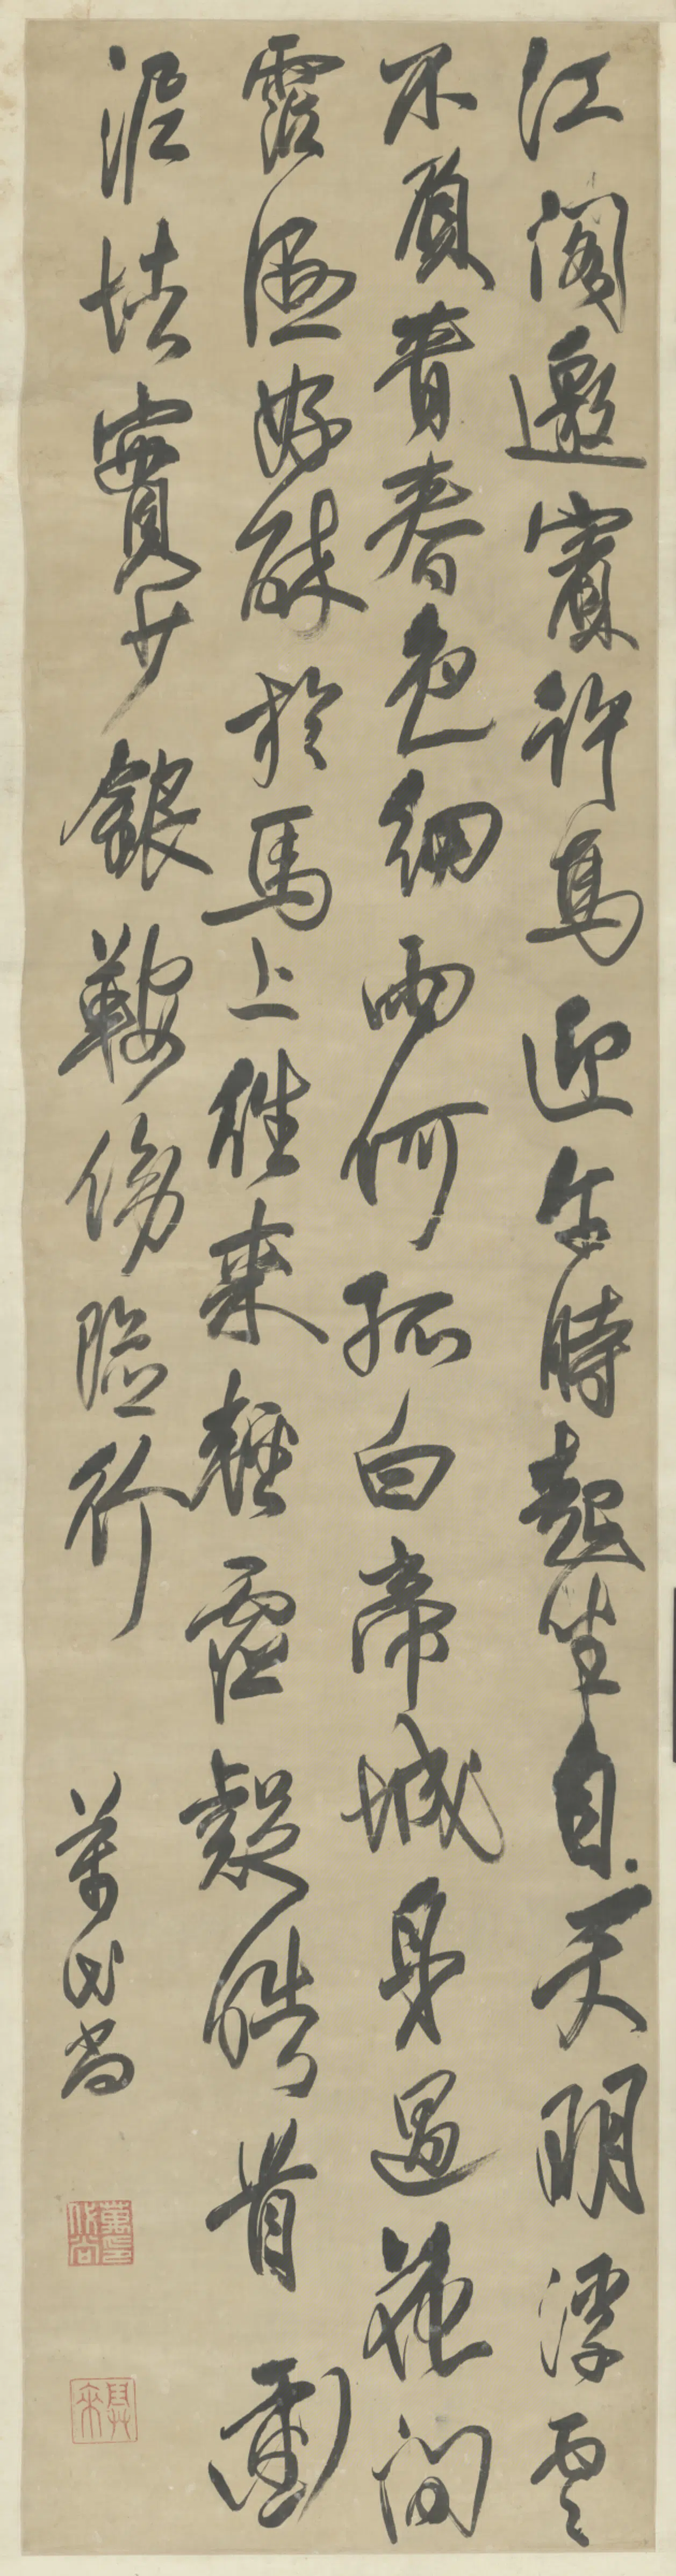 江閣邀賓許馬迎午時起坐自天明浮雲
不負青春色細雨何孤白帝城身過花間
霑溼好醉於馬上往來輕虛疑皓首衝
泥怯實少銀鞍傍險行
萬代尚
萬印代尚